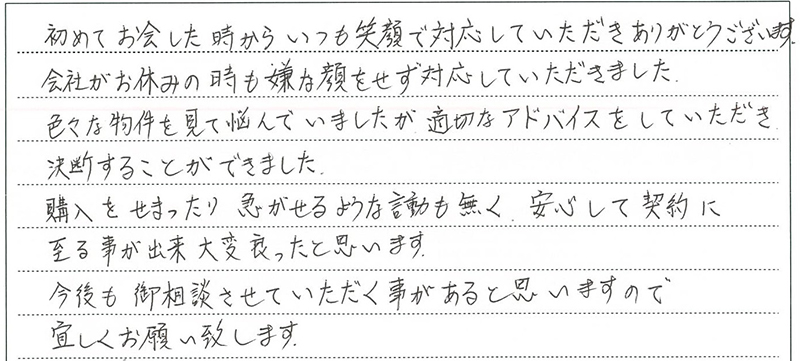 初めてお会した時からいつも笑顔で対応していただきありがとうございます.
会社がお休みの時も嫌な顔をせず対応していただきました.
色々な物件を見て悩んでいましたが 適切なアドバイスをしていただき
決断することができました.
購入をせまったり 急がせるような言動も無く. 安心して契約に
至る事が出来 大変良ったと思います.
今後も 御相談させていただく事があると思いますので
宜しくお願い致します.